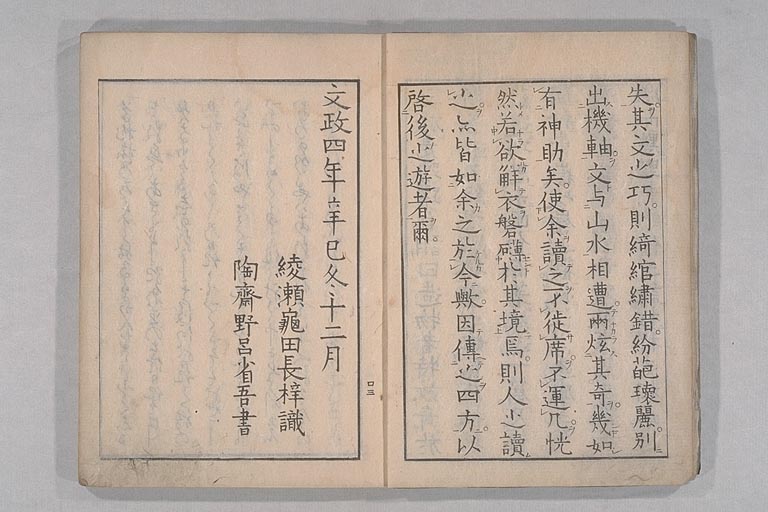 失其文之巧。則綺綰繡錯。紛葩瓌麗。別
出機軸。文与山水相遭。兩炫其奇。幾如
有神助矣。使余讀之。不徙席。不運几。恍
然若欲解衣磐礴於其境焉。則人之讀
之。亦皆如余之於今歟。因傳之四方。以
啓後之遊者爾。
文政四年辛巳冬十二月
綾瀬龜田長梓識
陶齋野呂省吾書
口三